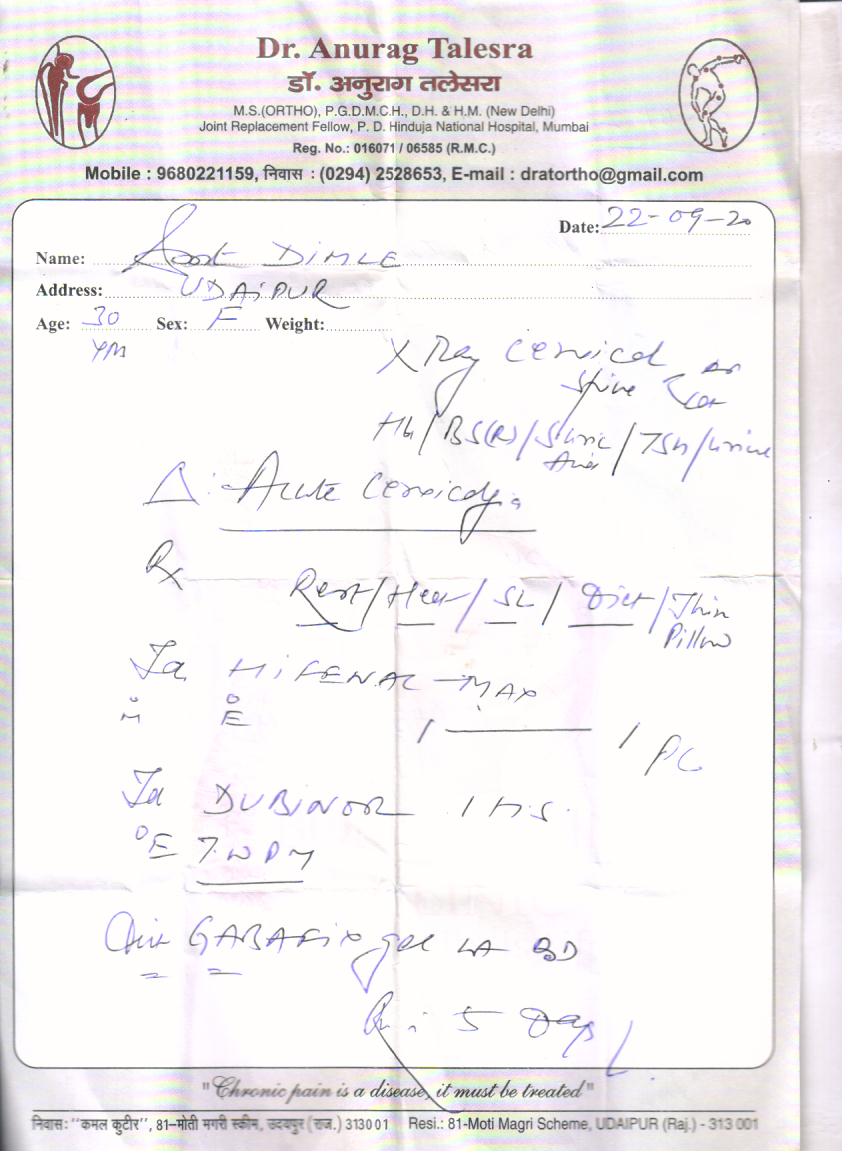 Dr. Anurag Talesra
डॉ. अनुराग तलेसरा
M.S.(ORTHO), P.G.D.M.C.H., D.H. & H.M. (New Delhi)
Joint Replacement Fellow, P. D. Hinduja National Hospital, Mumbai
Reg. No.: 016071 / 06585 (R.M.C.)
Mobile : 9680221159, निवास : (0294) 2528653, E-mail : dratortho@gmail.com
Date: 22-09-20
Name: DIMLE
Address: UDAIPUR
Age: 30 Sex: F Weight:
X Ray Cervical
Spine
Hb/BS(R)/S Uric/TSH/Urine
Δ: Acute
Rx
Rest/Heat/SL/Diet/Thin
Pillow
Ta HIFENAC-MAX
M E
1 ——— 1 PC
Ta DUBINOR 1 HS
E
GABAFIX gel LA BD
5 Days
"Chronic pain is a disease, it must be treated"
निवास: "कमल कुटीर", 81-मोती मगरी स्कीम, उदयपुर (राज.) 313001 Resi.: 81-Moti Magri Scheme, UDAIPUR (Raj.) - 313 001